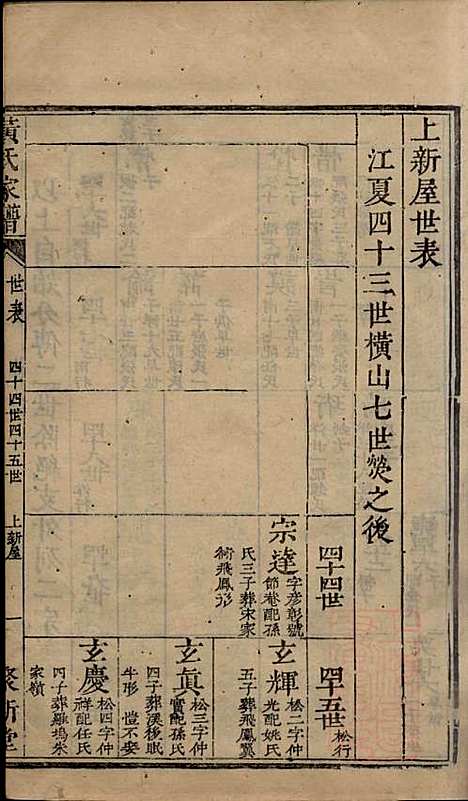 上新屋世表
江夏四十三世橫山七世熒之後
四十四世
宗達
字彦彰號
節巷配孫
氏三子葬宋家
衕飛鳳形
四十五世
松行
玄輝
松二字仲
光配姚氏
五子葬飛鳳翼
玄眞
松三字仲
實配孫氏
四子葬漢後眠
牛形 愷不妄
玄慶
松四字仲
祥配任氏
四子葬雞塢朱
家嶺
黃氏家譜
世表
四十四世四十五世
上新屋
一
聚斯堂